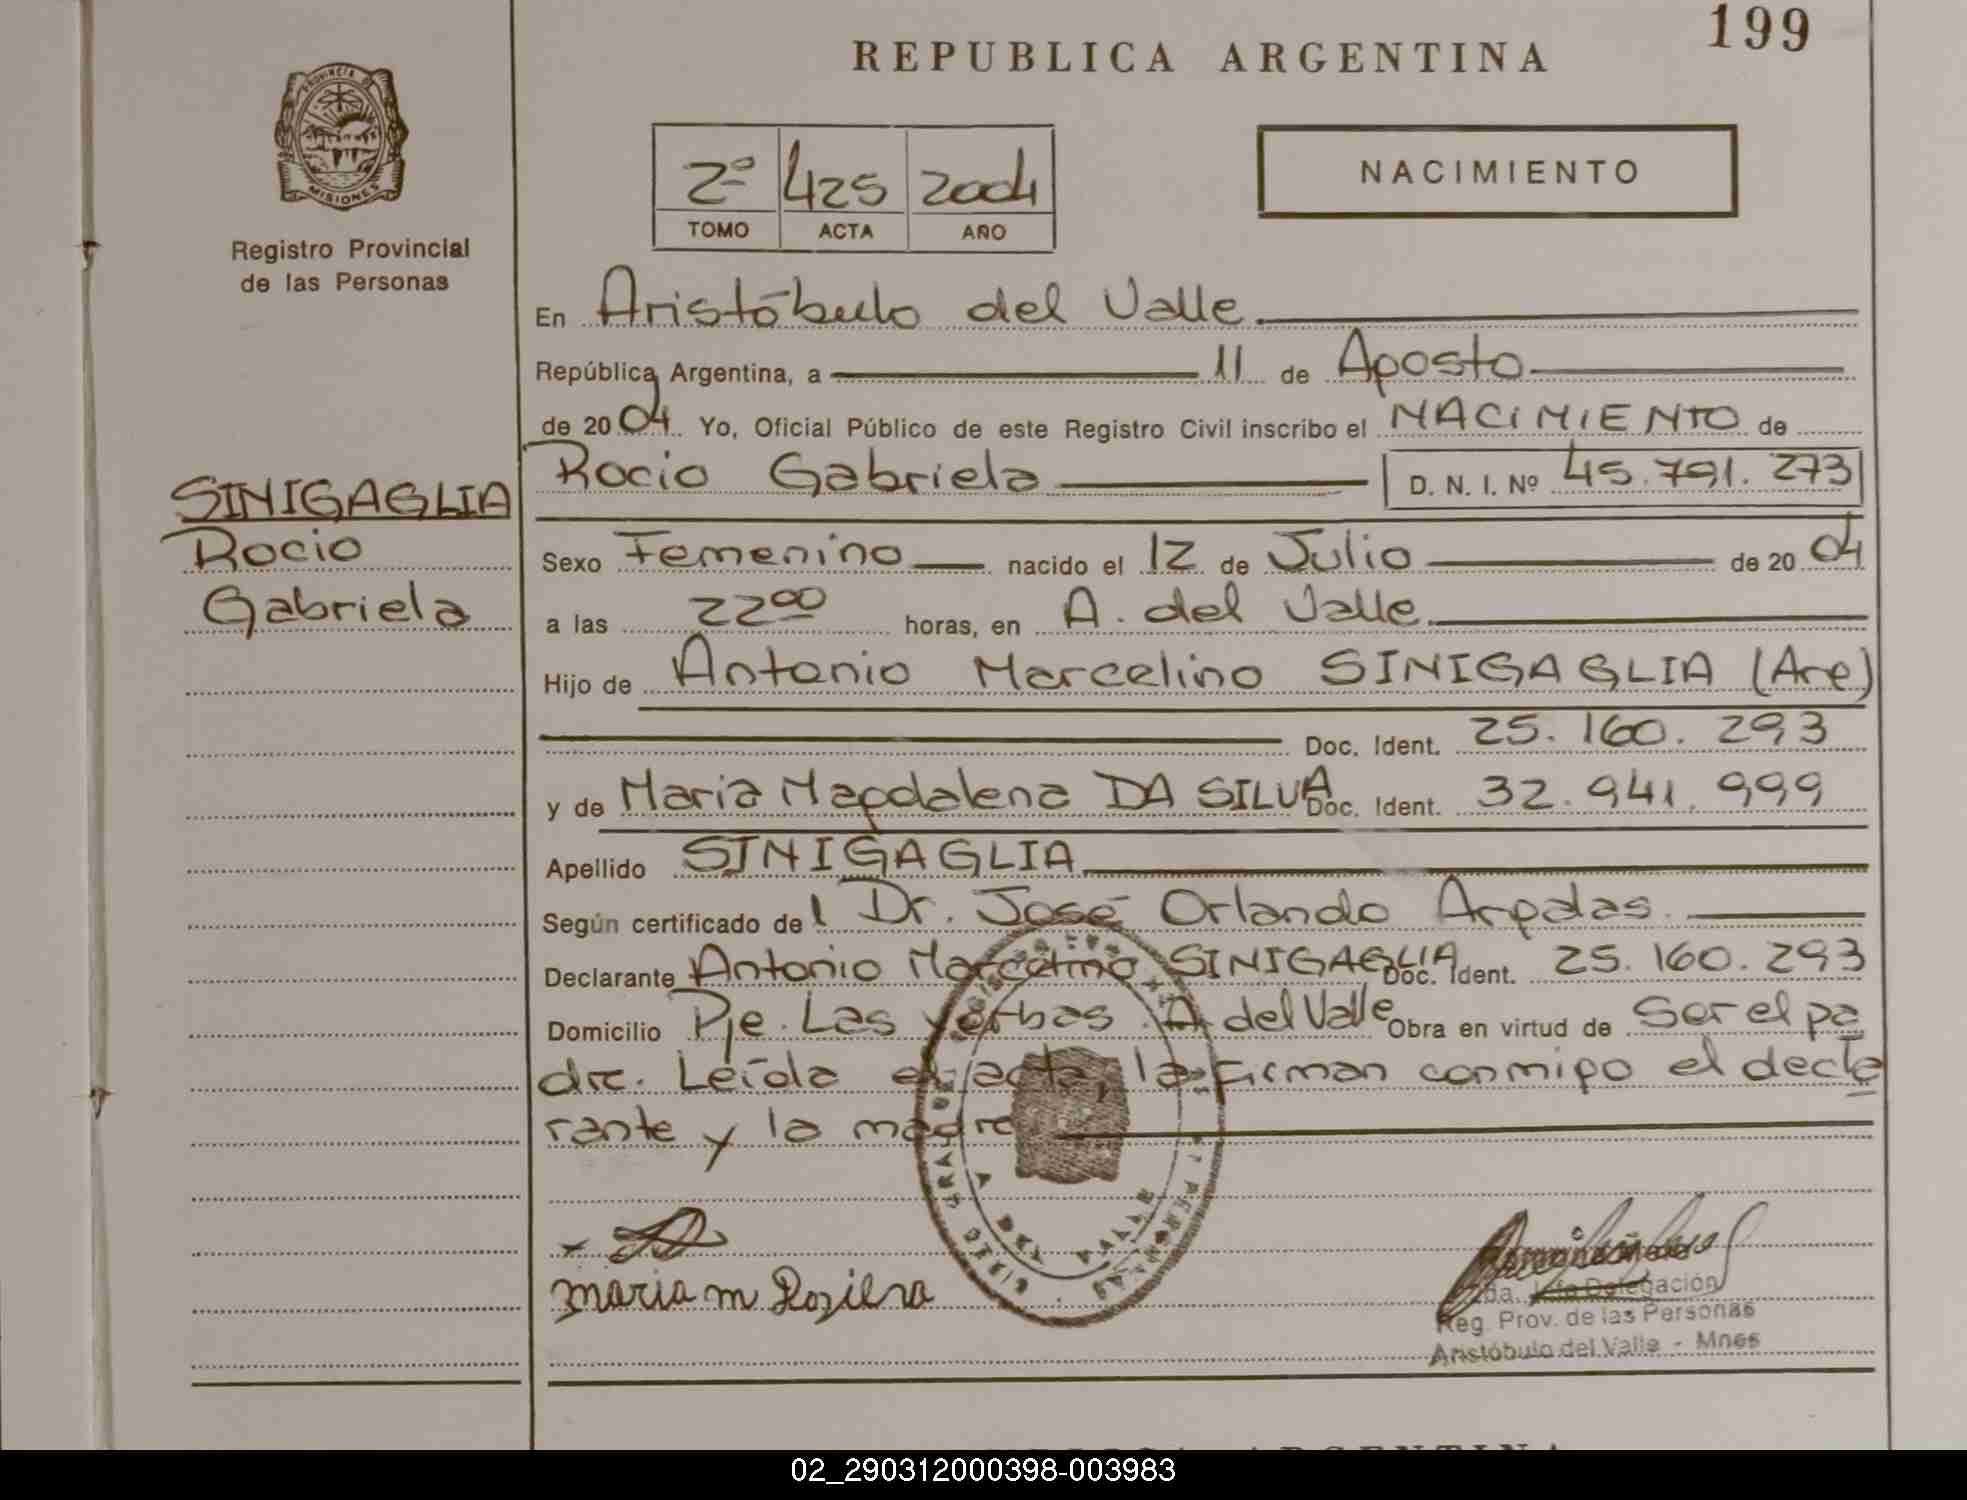 199
REPUBLICA ARGENTINA
PROVINCIA DE
MISIONES
Registro Provincial
de las Personas
2º 425 2004
TOMO ACTA AÑO
NACIMIENTO
En Aristóbulo del Valle
República Argentina, a 11 de Agosto
de 2004 Yo, Oficial Público de este Registro Civil inscribo el NACIMIENTO de
Rocio Gabriela D. N. I. Nº 45.791.273
SINIGAGLIA
Rocio
Gabriela
Sexo Femenino nacido el 12 de Julio de 2004
a las 22 00 horas, en A. del Valle
Hijo de Antonio Marcelino SINIGAGLIA (Arg)
Doc. Ident. 25.160.293
y de Maria Magdalena DA SILVA Doc. Ident. 32.941.999
Apellido SINIGAGLIA
Según certificado del Dr. José Orlando
Declarante Antonio Marcelino SINIGAGLIA Doc. Ident. 25.160.293
Domicilio Pje. Las Yerbas. A. del Valle Obra en virtud de Ser el pa
dre. Leída el acta, la firman conmigo el decla
rante y la madre
maria m
Delegación
Reg. Prov. de las Personas
Aristóbulo del Valle - Mnes
02_290312000398-003983